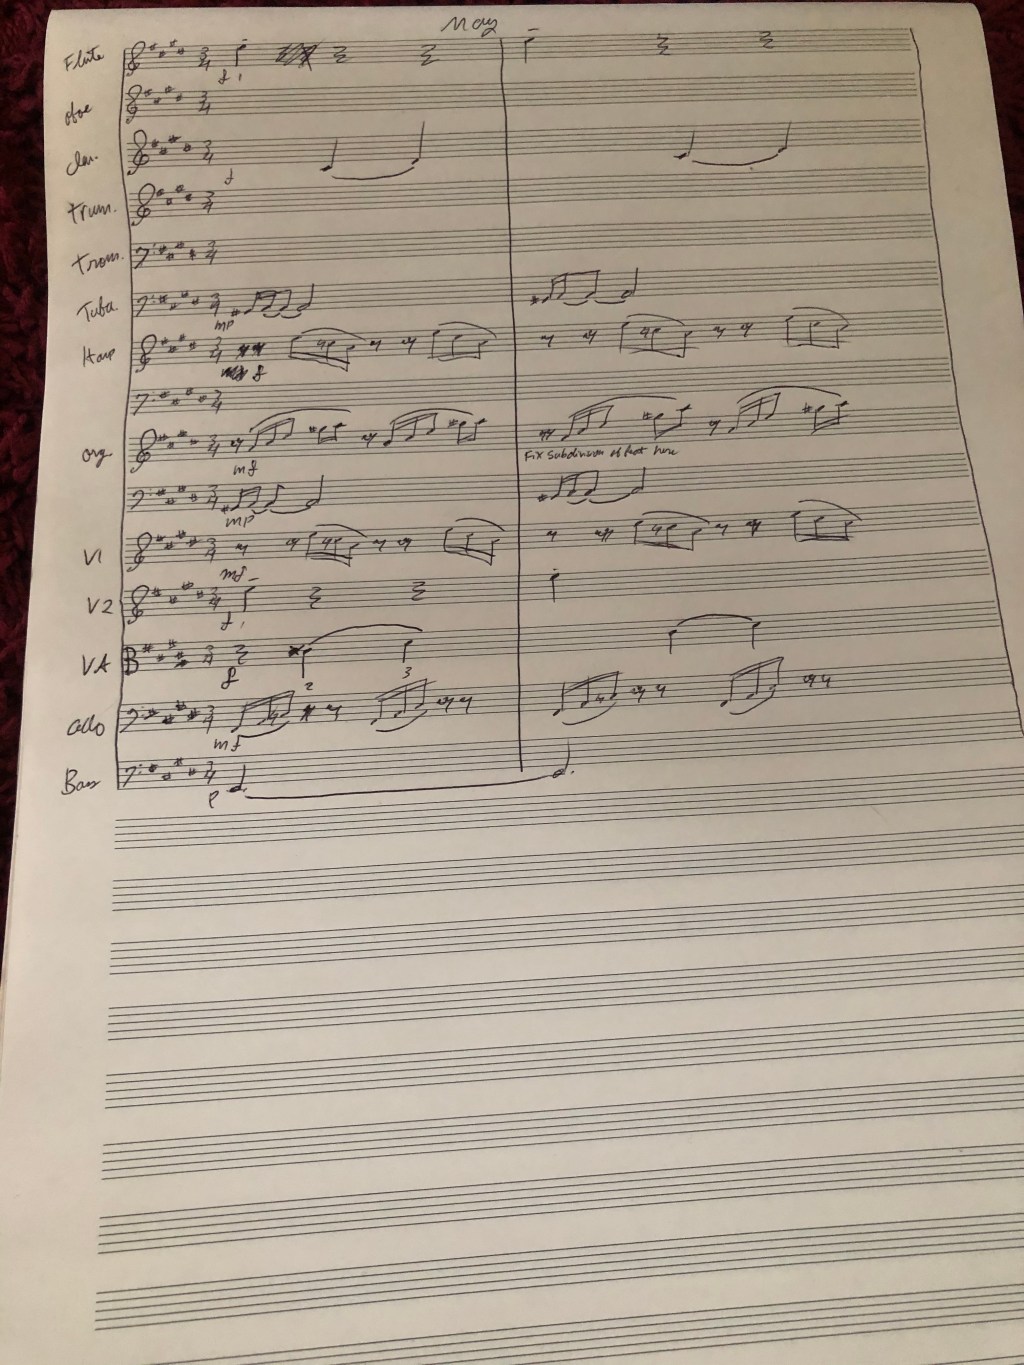 May
Flute
f
oboe
clar.
f
Trum.
Trom.
Tuba
mp
Harp
f
org
mf
Fix subdivision of beat here
mp
V1
mf
V2
f
VA
f
2 3
cello
mf
Bass
p